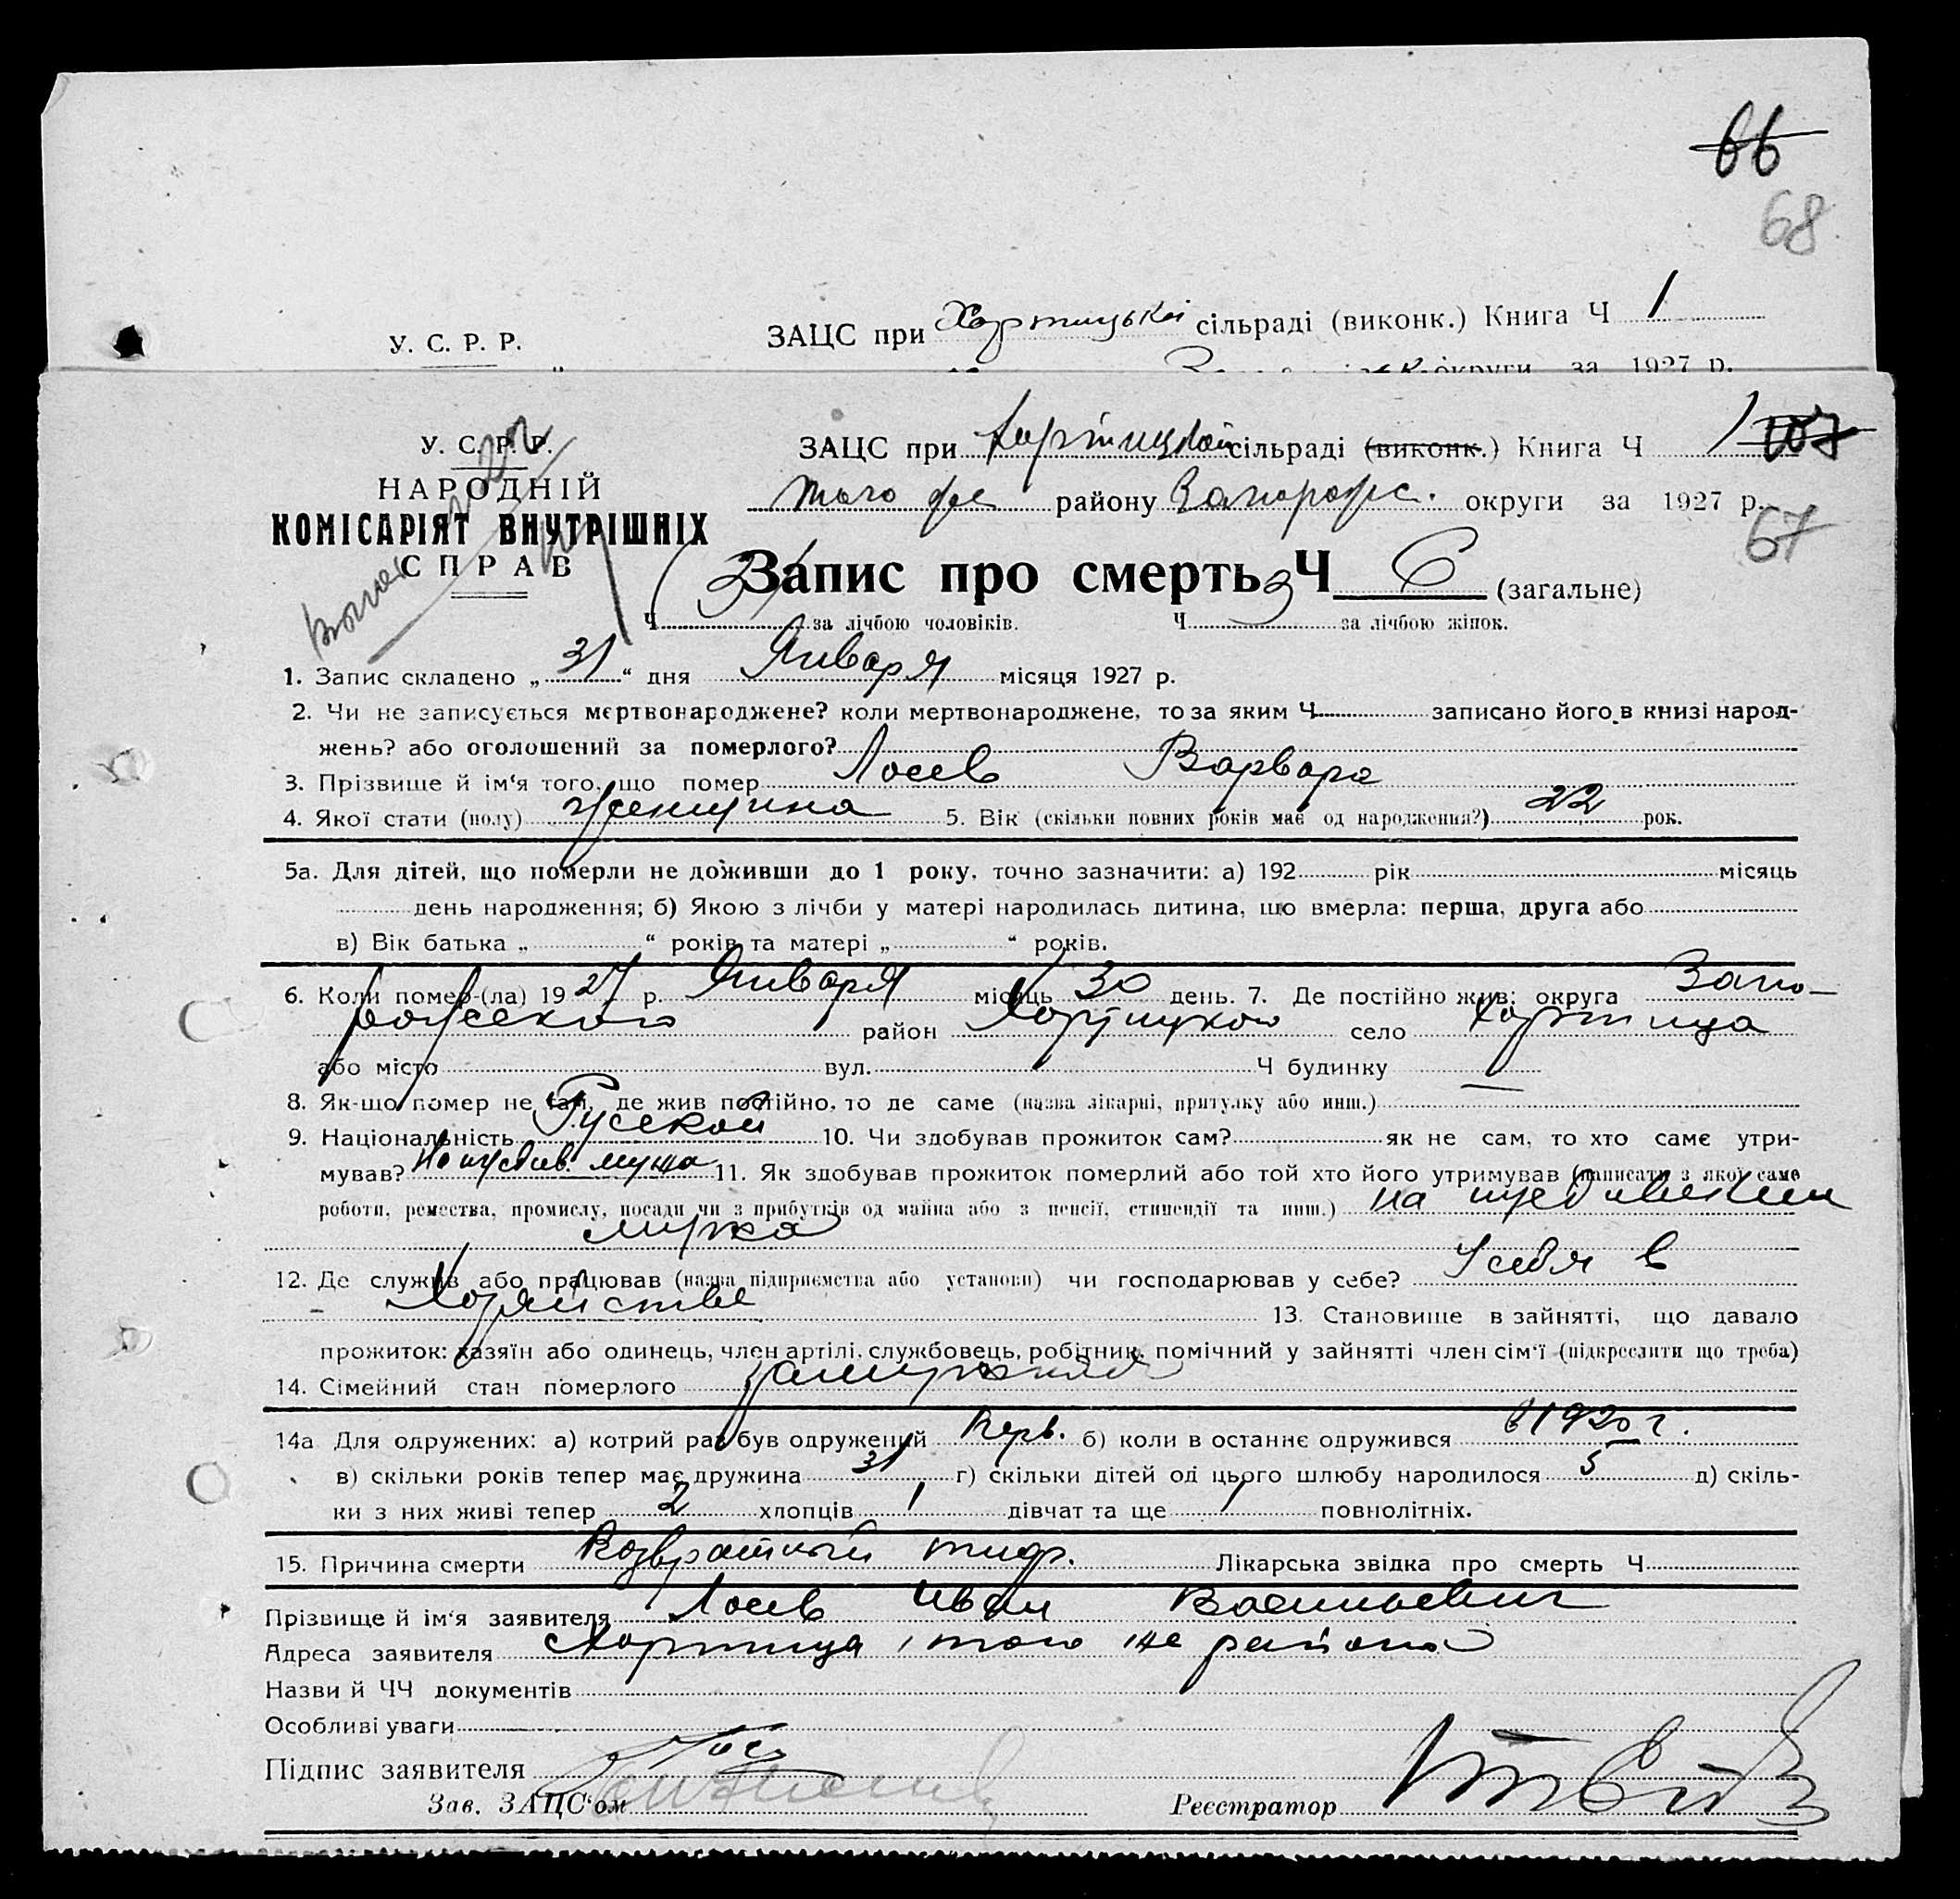 66
68
У. С. Р. Р.
ЗАЦС при Хортицькій сільраді (виконк.) Книга Ч 1
округи за 1927 р.
У. С. Р. Р.
НАРОДНІЙ
КОМІСАРІЯТ ВНУТРІШНІХ
СПРАВ
ЗАЦС при Хортицкой сільраді (виконк.) Книга Ч 1
того же району Запорожс. округи за 1927 р.
67
Запис про смерть Ч 6 (загальне)
Ч за лічбою чоловіків. Ч 3 за лічбою жінок.
1. Запис складено „31“ дня Января місяця 1927 р.
2. Чи не записується мертвонароджене? коли мертвонароджене, то за яким Ч записано його в книзі народ-
жень? або оголошений за померлого?
3. Прізвище й ім‘я того, що помер Лосев Варвара
4. Якої стати (полу) женщина 5. Вік (скільки повних років має од народження?) 22 рок.
5а. Для дітей, що померли не доживши до 1 року, точно зазначити: а) 192 рік місяць
день народження; б) Якою з лічби у матері народилась дитина, що вмерла: перша, друга або
в) Вік батька „ “ років та матері „ “ років.
6. Коли помер-(ла) 1927 р. Января місяць 30 день. 7. Де постійно жив: округа Запо-
рожского район Хортицкого село Хортица
або місто вул. Ч будинку —
8. Як-що помер не там, де жив постійно, то де саме (назва лікарні, притулку або инш.)
9. Національність Русской 10. Чи здобував прожиток сам? як не сам, то хто саме утри-
мував? На иждив. мужа 11. Як здобував прожиток померлий або той хто його утримував (написати з якої саме
роботи, ремества, промислу, посади чи з прибутків од майна або з пенсії, стипендії та инш.) на иждивении
мужа
12. Де служив або працював (назва підприємства або установи) чи господарював у себе? У себя в
Хозяйстве 13. Становище в зайнятті, що давало
прожиток: хазяїн або одинець, член артілі, службовець, робітник, помічний у зайнятті член сім‘ї (підкреслити що треба)
14. Сімейний стан померлого замужняя
14а Для одружених: а) котрий раз був одружений Перв. б) коли в останнє одружився в 1920 г.
в) скільки років тепер має дружина 31 г) скільки дітей од цього шлюбу народилося 5 д) скіль-
ки з них живі тепер 2 хлопців 1 дівчат та ще 1 повнолітніх.
15. Причина смерти Возвратный тиф. Лікарська звідка про смерть Ч
Прізвище й ім‘я заявителя Лосев Иван Васильевич
Адреса заявителя Хортица, того же района
Назви й ЧЧ документів
Особливі уваги
Підпис заявителя
Зав. ЗАЦС‘ом Реєстратор